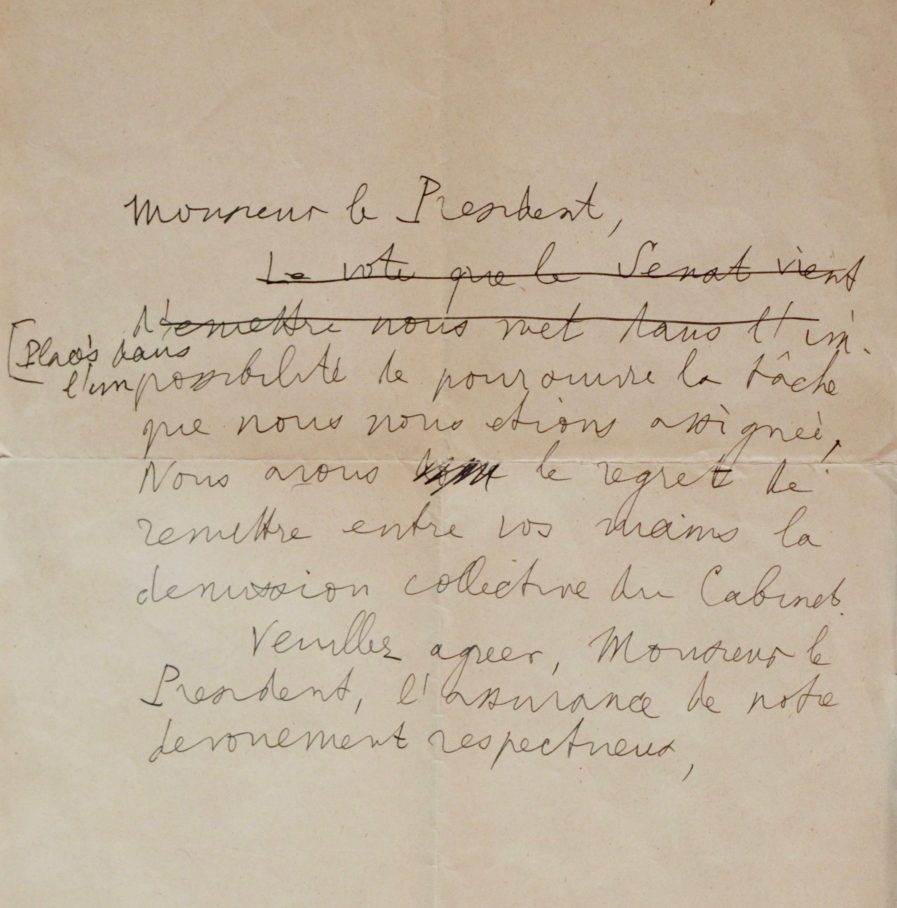 Monsieur le President,
Le vote que le Senat vient
d'emettre nous met dans l'im-
[Placés dans
l'impossibilité de poursuivre la tâche
que nous nous etions assignée,
Nous avons le regret de
remettre entre vos mains la
demission collective du Cabinet.
Veuillez agreer, Monsieur le
President, l'assurance de notre
devouement respectueux,